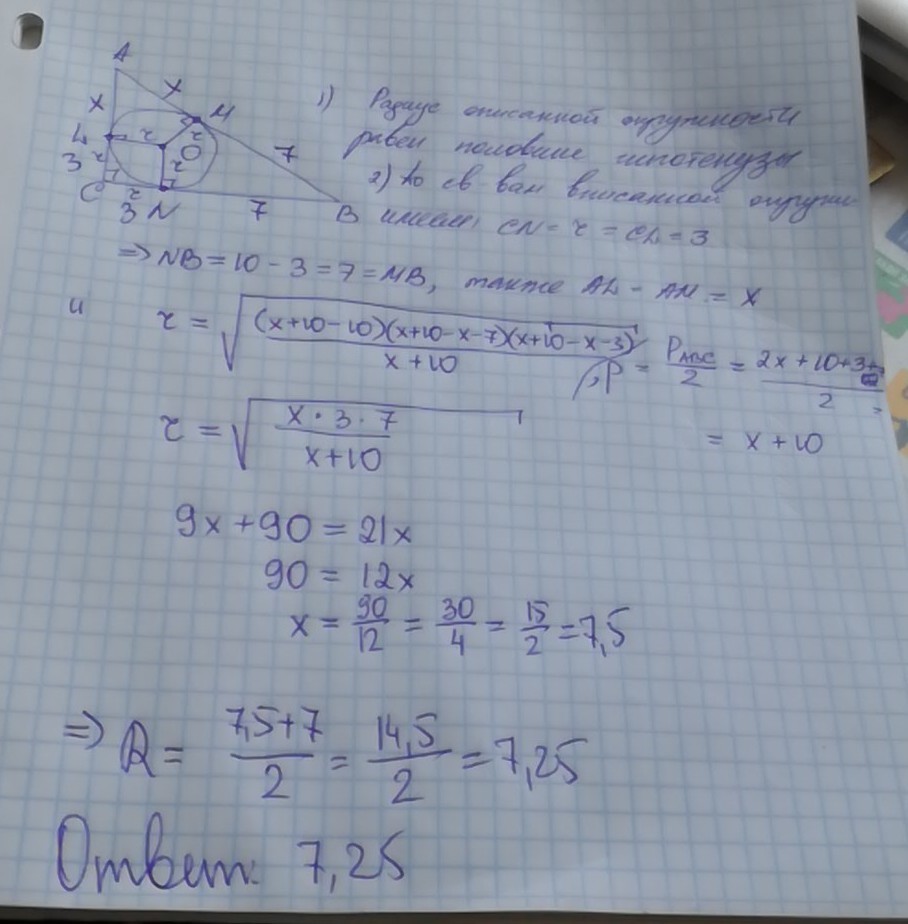 A
x
x
M
L
r
r
O
7
3
r
r
C
r
3
N
7
B
1) Радиус описанной окружности
равен половине гипотенузы
2) по св вам вписанной окружн
имеем: CN = r = CL = 3
=> NB = 10 - 3 = 7 = MB, также AL = AM = x
и
r = √((x+10-10)(x+10-x-7)(x+10-x-3) / (x+10))
, p = P ABC / 2 = (2x + 10+3+ / 2
= x + 10
r = √(x · 3 · 7 / (x+10))
9x + 90 = 21x
90 = 12x
x = 90/12 = 30/4 = 15/2 = 7,5
=> R = (7,5+7)/2 = 14,5/2 = 7,25
Ответ: 7,25